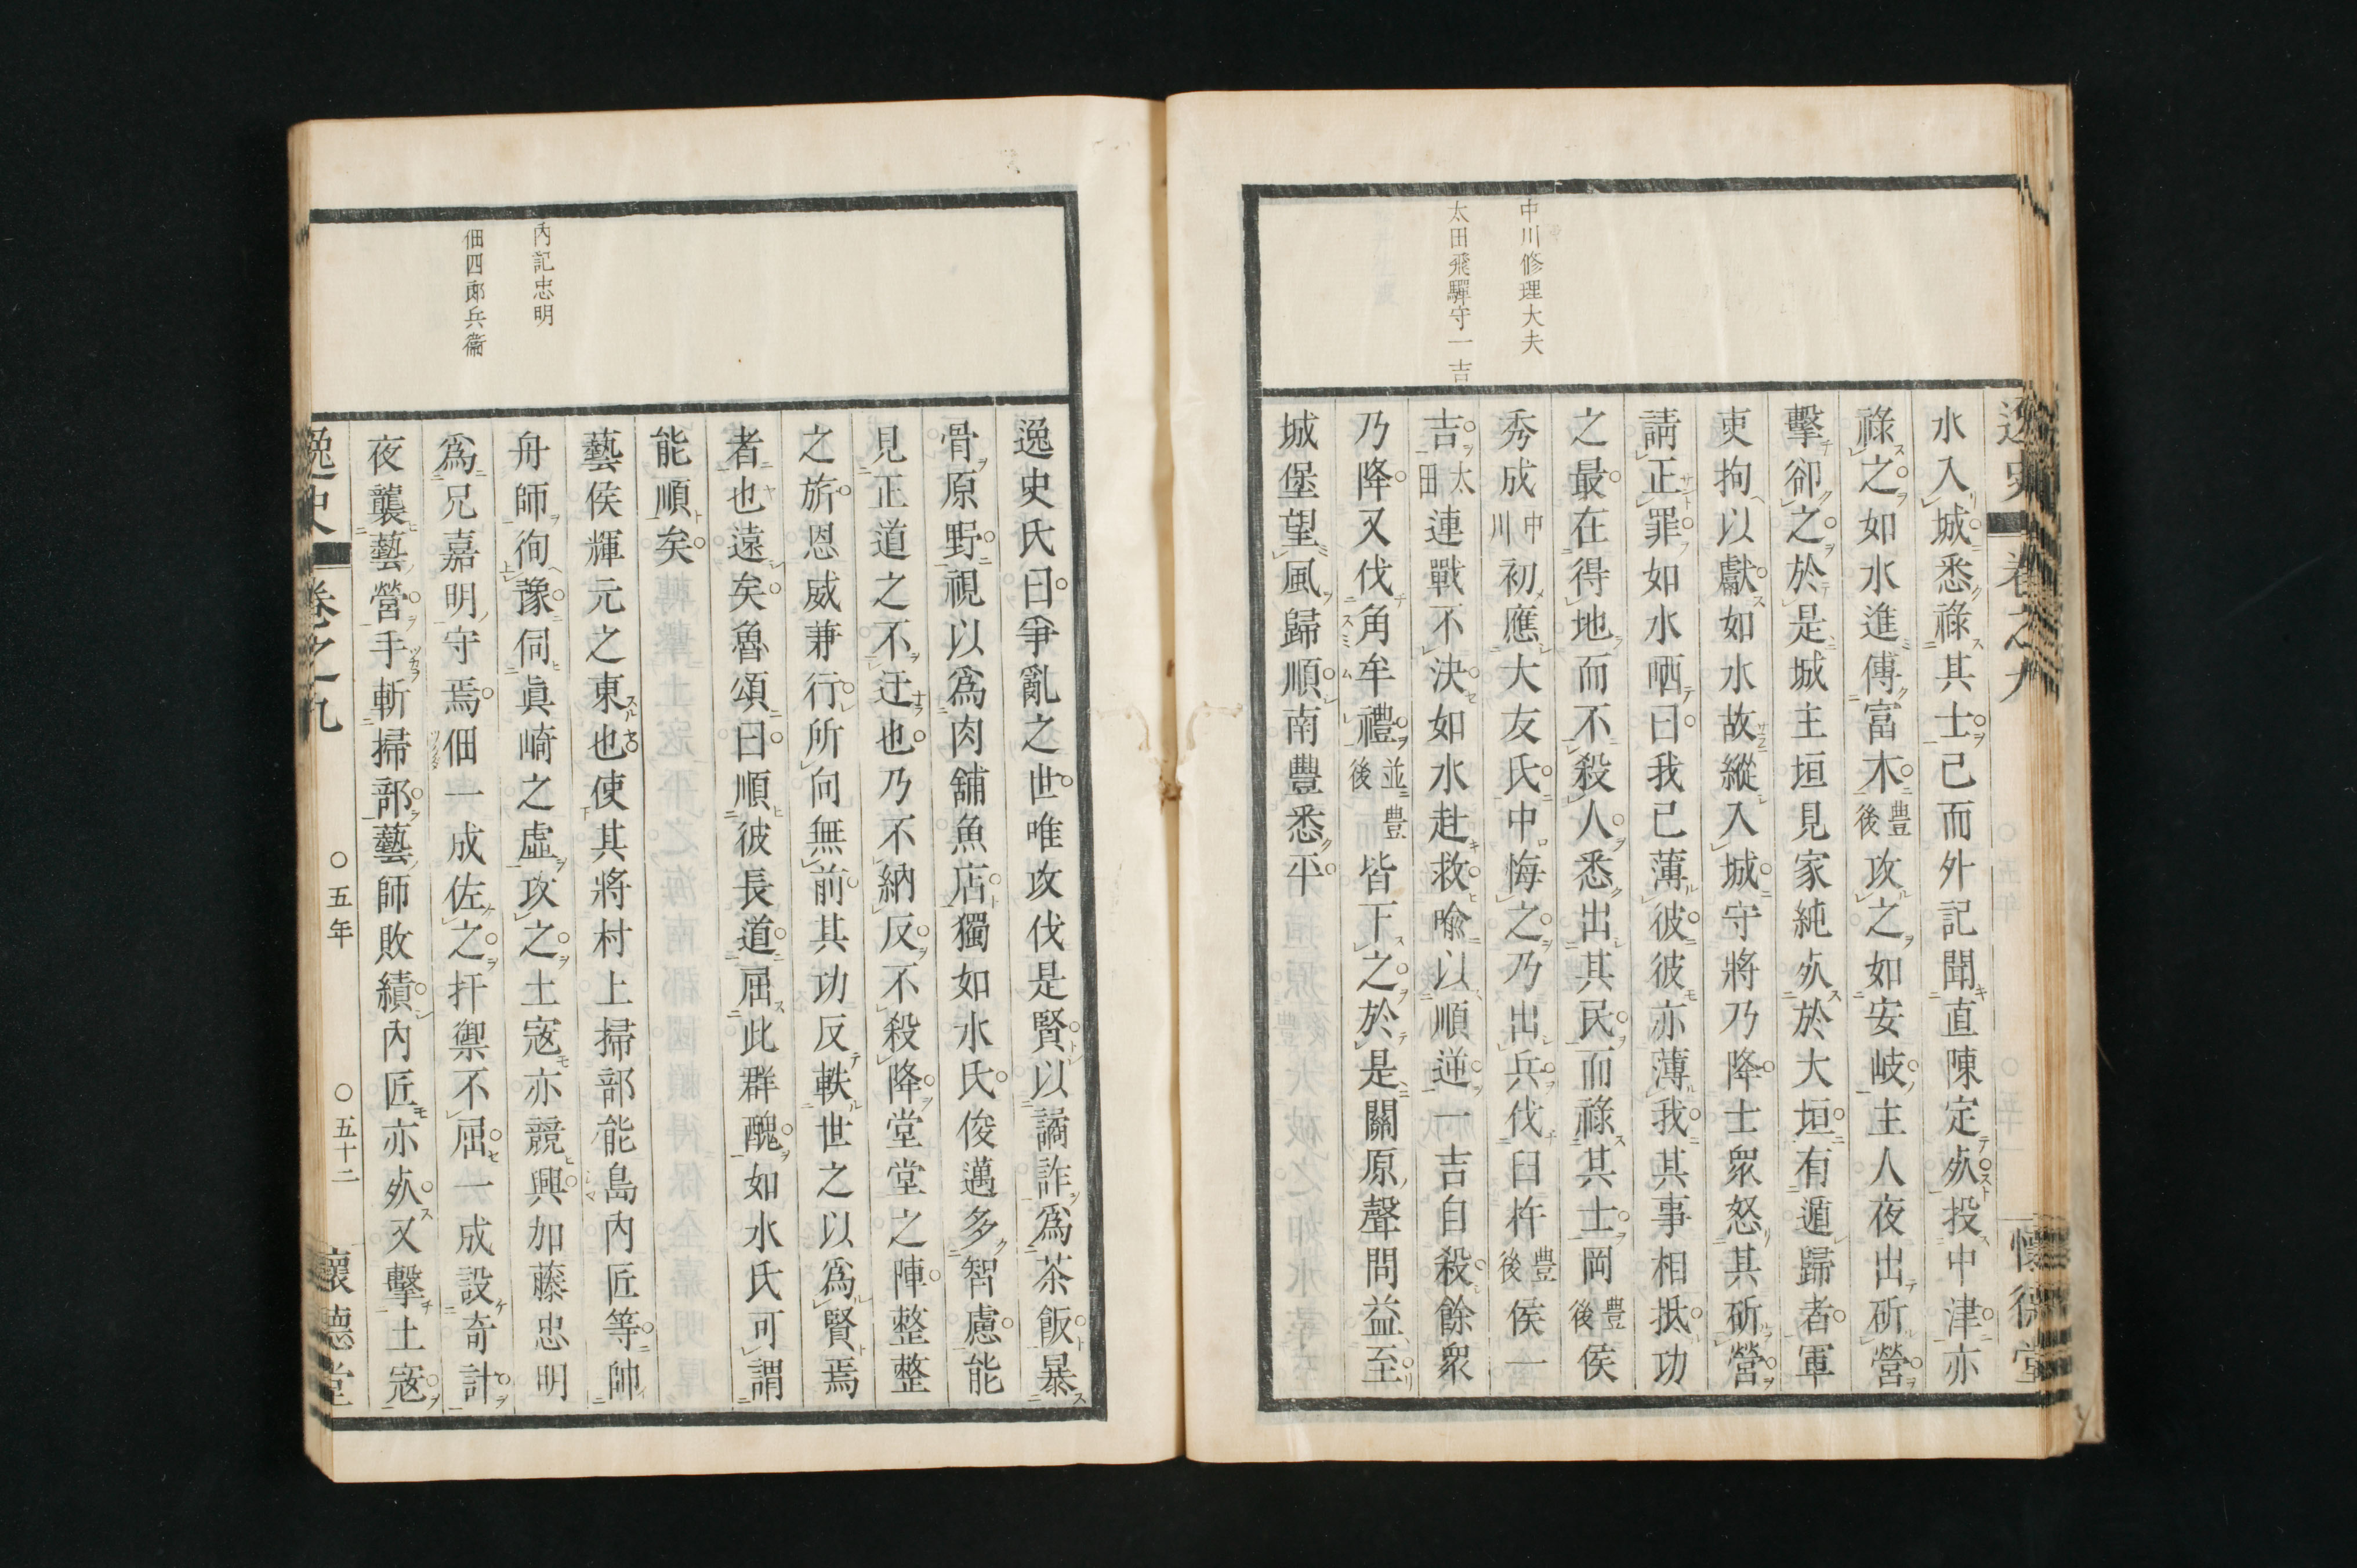 中川修理大夫
太田飛驒守一吉
水入城悉祿其士已而外記聞直陳定死投中津亦
祿之如水進傅富木豐後攻之如安岐主人夜出斫營
擊卻之於是城主垣見家純死於大垣有遁歸者軍
吏拘以獻如水故縱入城守將乃降士衆怒其斫營
請正罪如水哂曰我已薄彼彼亦薄我其事相抵功
之最在得地而不殺人悉出其民而祿其士岡豐後侯
秀成中川初應大友氏中悔之乃出兵伐臼杵豐後侯一
吉太田連戰不決如水赴救喩以順逆一吉自殺餘衆
乃降又伐角牟禮並豐後皆下之於是關原聲問益至
城堡望風歸順南豐悉平
內記忠明
佃四郞兵衞
逸史氏曰爭亂之世唯攻伐是賢以譎詐爲茶飯暴
骨原野視以爲肉舖魚店獨如水氏俊邁多智慮能
見正道之不迂也乃不納反不殺降堂堂之陣整整
之旂恩威兼行所向無前其功反軼世之以爲賢焉
者也遠矣魯頌曰順彼長道屈此群醜如水氏可謂
能順矣
藝侯輝元之東也使其將村上掃部能島內匠等帥
舟師徇豫伺眞崎之虛攻之土寇亦競興加藤忠明
爲兄嘉明守焉佃一成佐之扞禦不屈一成設奇計
夜襲藝營手斬掃部藝師敗績內匠亦死又擊土寇
逸史 卷之九 〇五年 〇五十二 懷德堂